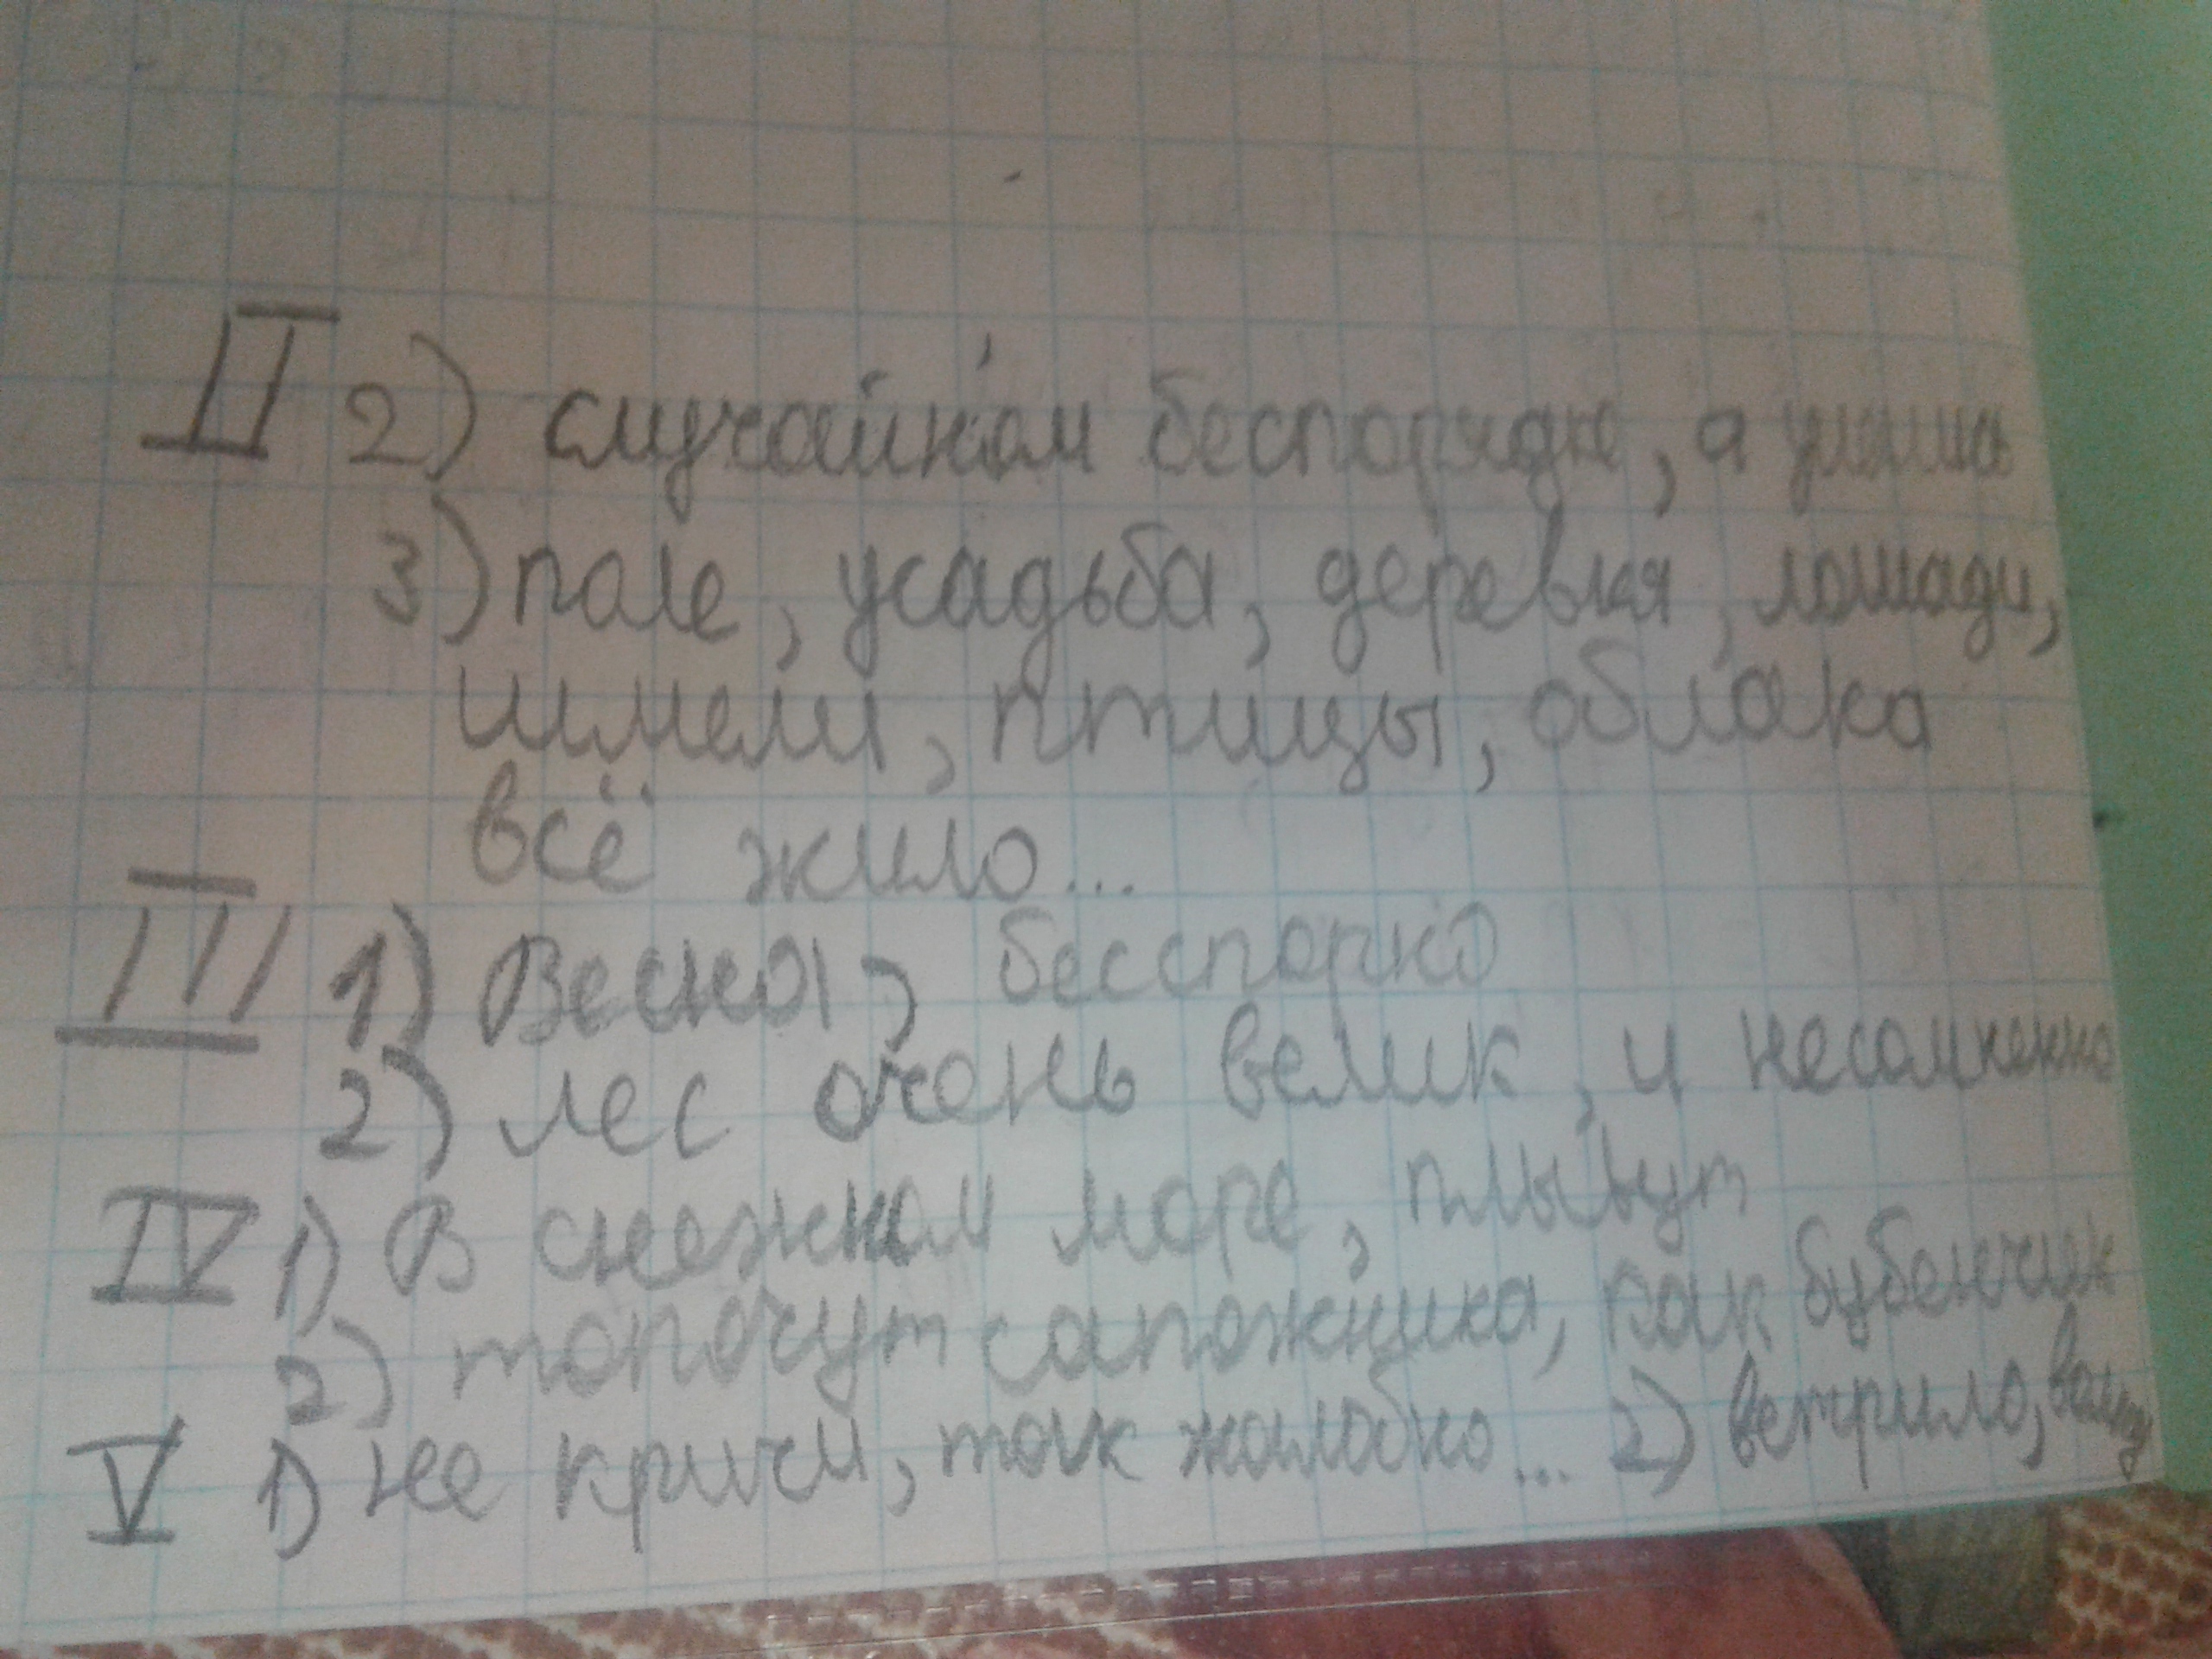 II 2) случайном беспорядке, а улица
3) поле, усадьба, деревня, лошади,
шмели, птицы, облака
всё жило...
III 1) Весна, бесспорно
2) лес очень велик, и несомненно
IV 1) В снежном море, плывут
2) топочут сапожника, как бубенчик
V 1) Не кричи, так жалобно... 2) ветрило,